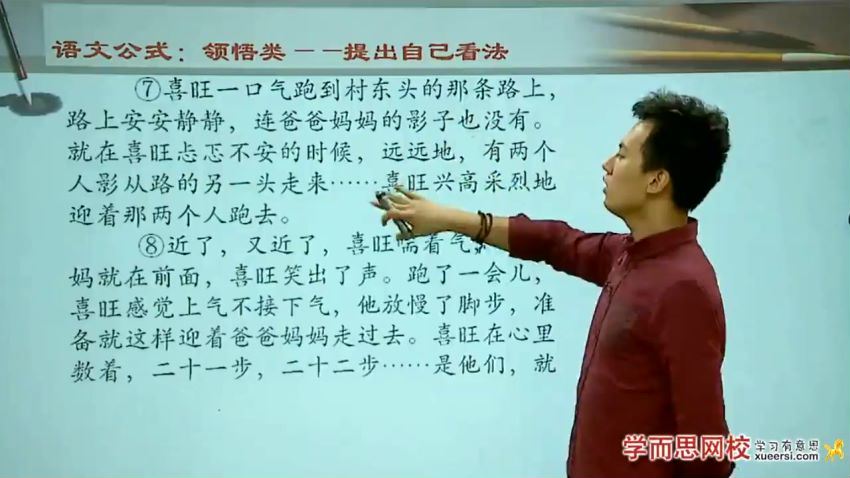 语文公式：领悟类－－提出自己看法
⑦喜旺一口气跑到村东头的那条路上，
路上安安静静，连爸爸妈妈的影子也没有。
就在喜旺忐忑不安的时候，远远地，有两个
人影从路的另一头走来……喜旺兴高采烈地
迎着那两个人跑去。
⑧近了，又近了，喜旺喘着气，
妈就在前面，喜旺笑出了声。跑了一会儿，
喜旺感觉上气不接下气，他放慢了脚步，准
备就这样迎着爸爸妈妈走过去。喜旺在心里
数着，二十一步，二十二步……是他们，就
学而思网校
学习有意思
xueersi.com